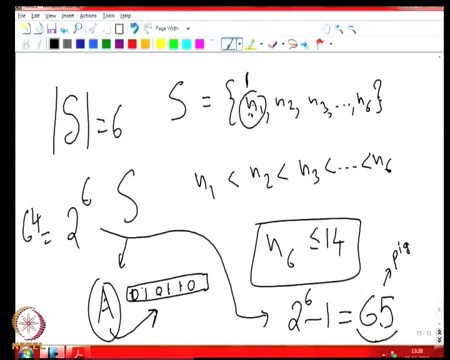 File Edit View Insert Actions Tools Help
Page Width
1
|S| = 6 S = {n₁, n₂, n₃, ..., n₆}
n₁ < n₂ < n₃ < ... < n₆
64 = 2⁶ S
n₆ ≤ 14
A 010110
pig
2⁶-1 = 65